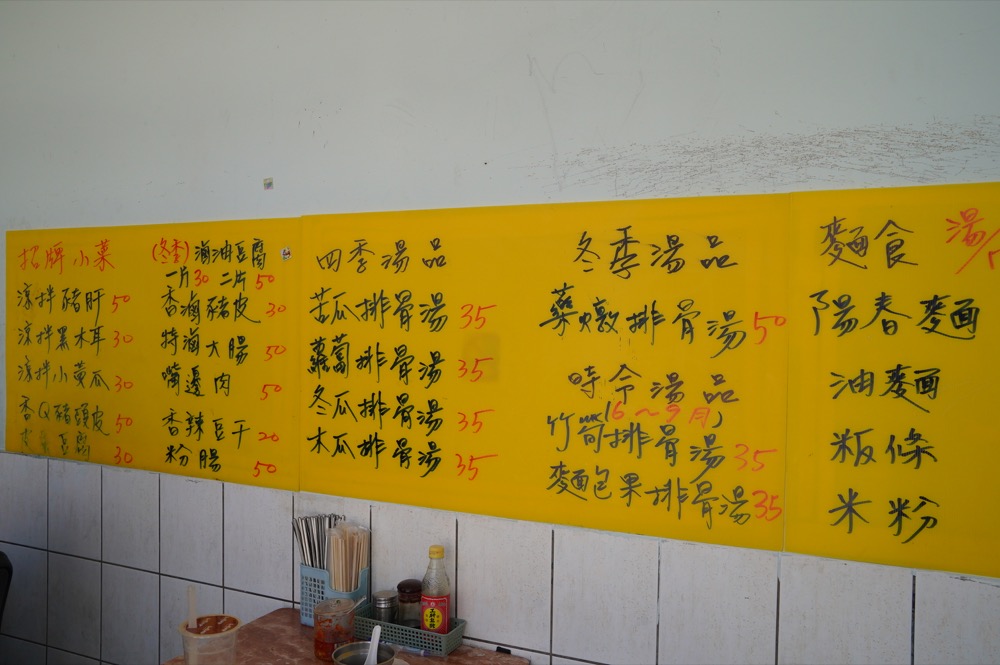 招牌小菜
涼拌豬肝 50
涼拌黑木耳 30
涼拌小黃瓜 30
香Q豬頭皮 50
豆腐 30
(冬季) 滷油豆腐
一片30 二片50
香滷豬皮 30
特滷大腸 50
嘴邊肉 50
香辣豆干 20
粉腸 50
四季湯品
苦瓜排骨湯 35
蘿蔔排骨湯 35
冬瓜排骨湯 35
木瓜排骨湯 35
冬季湯品
藥燉排骨湯 50
時令湯品
(6～9月)
竹筍排骨湯 35
麵包果排骨湯 35
麵食 湯/
陽春麵
油麵
粄條
米粉